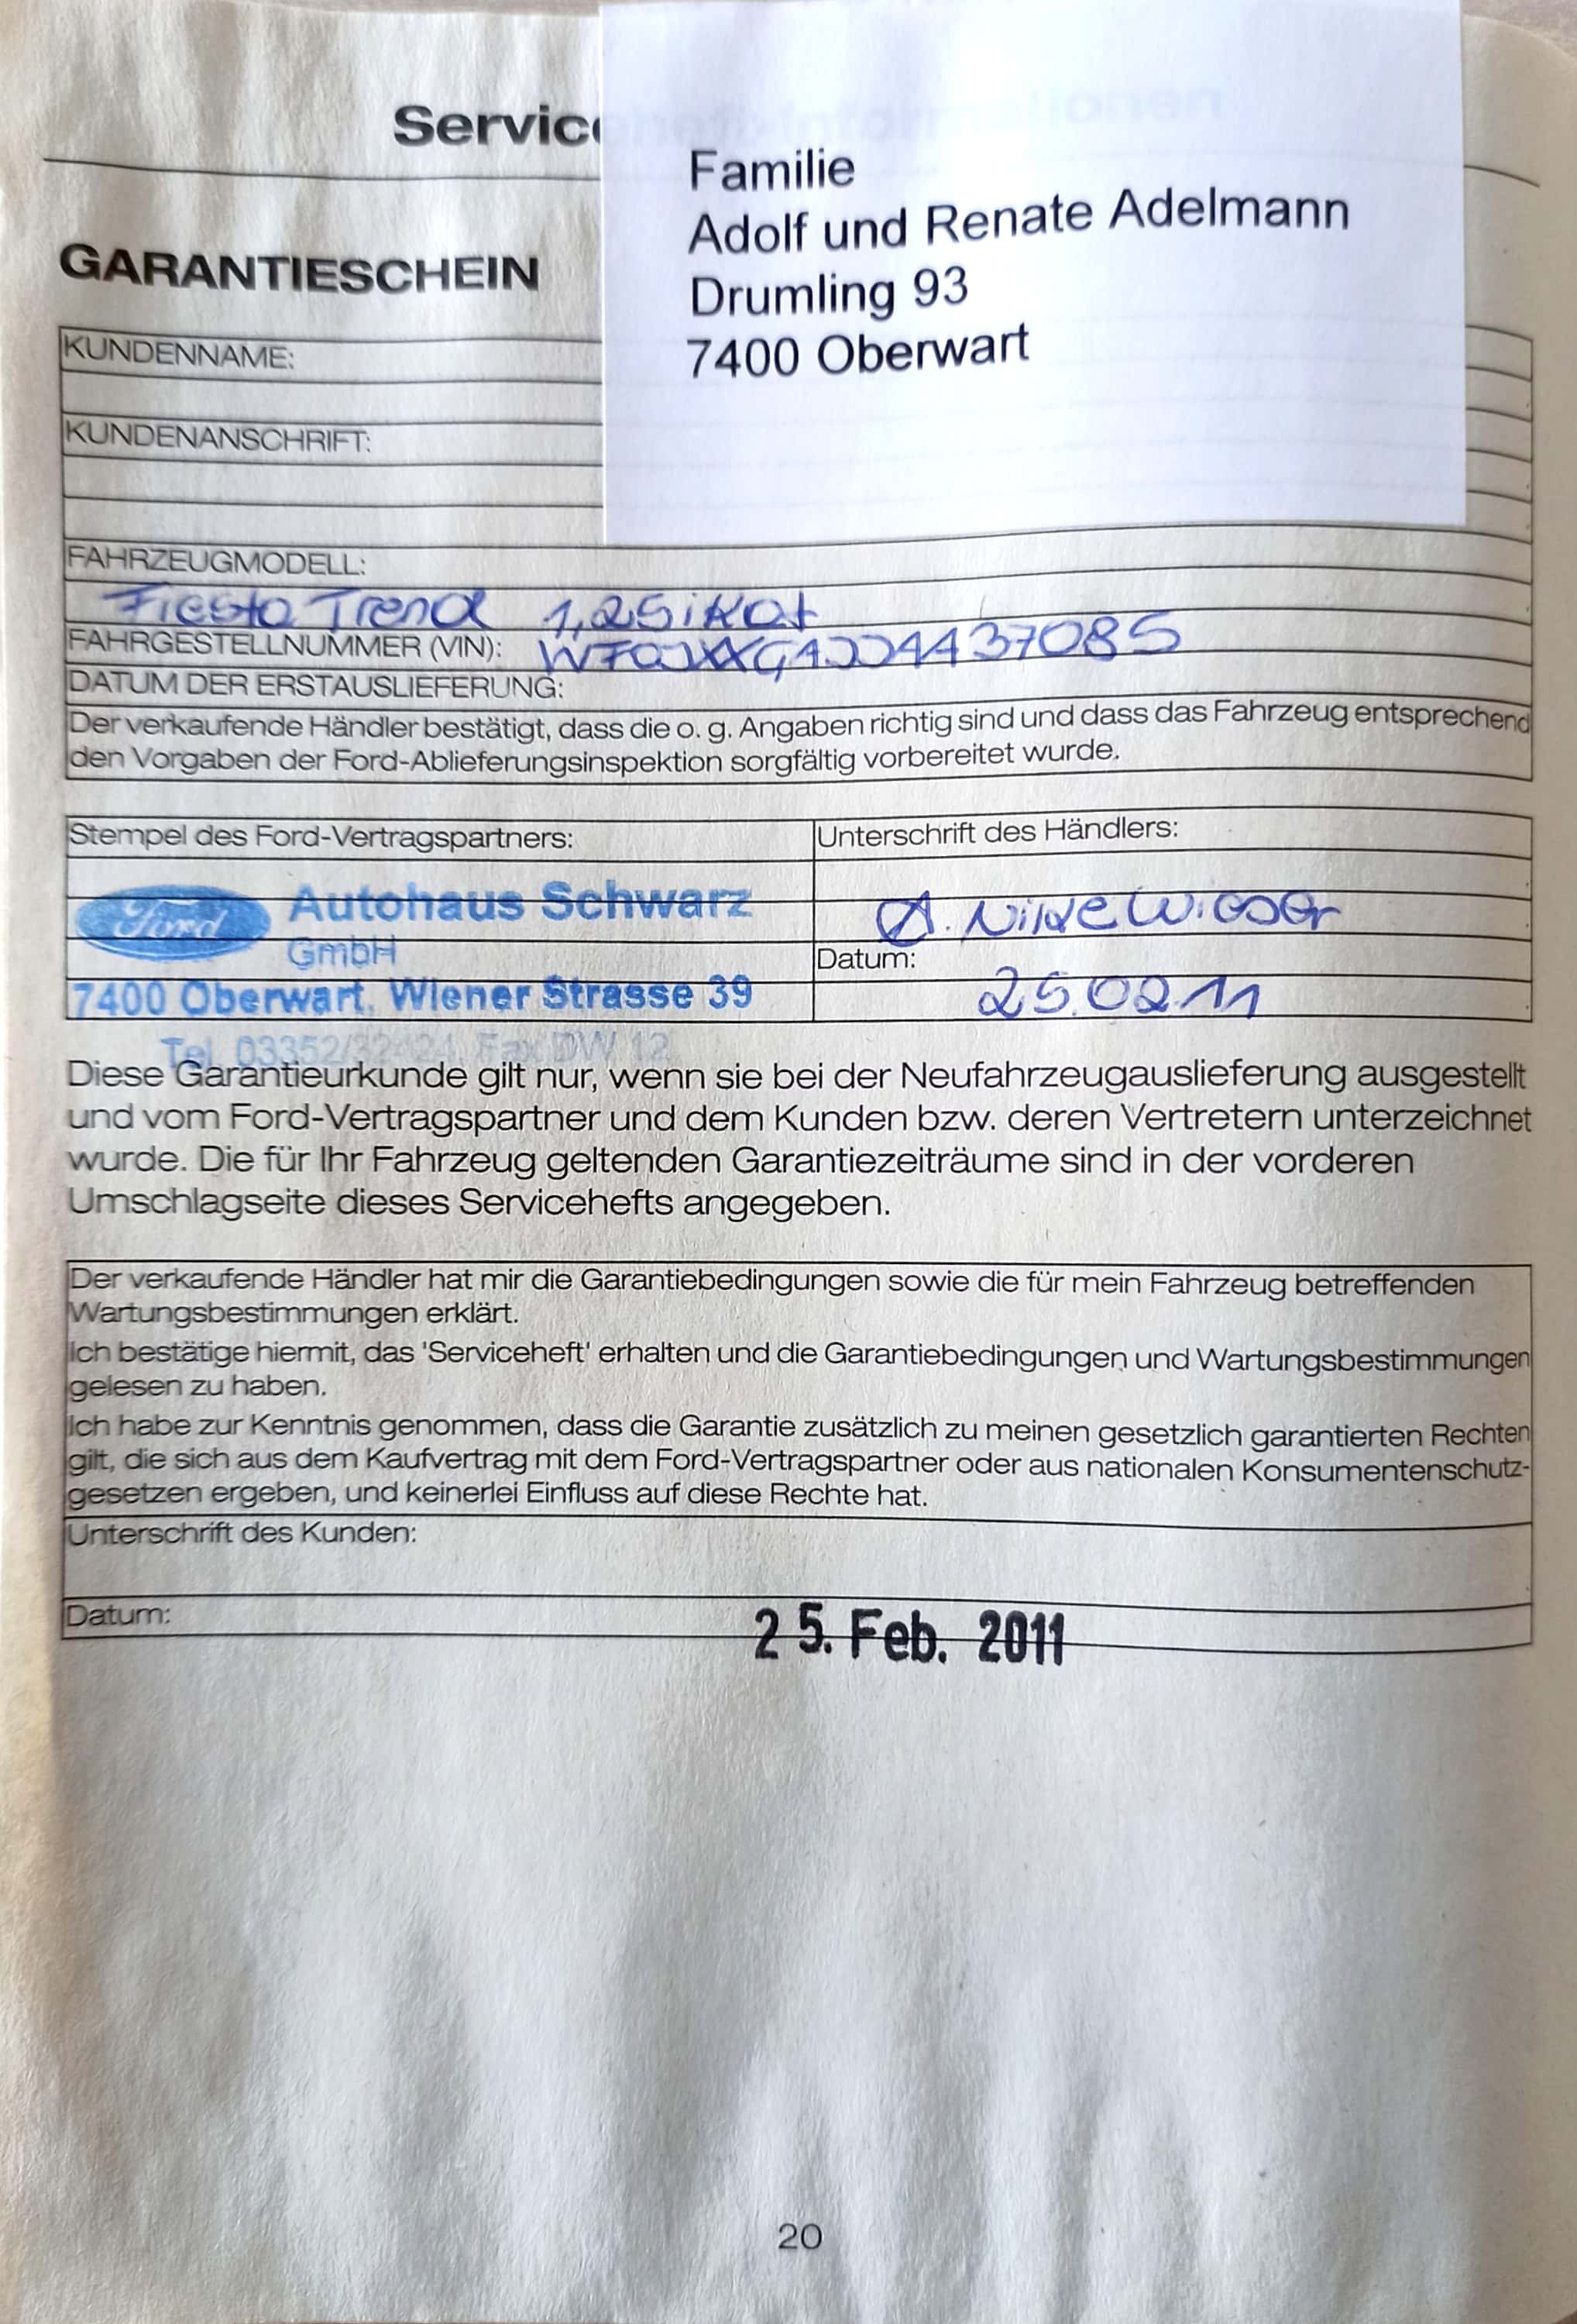 Servic
Familie
Adolf und Renate Adelmann
Drumling 93
7400 Oberwart
GARANTIESCHEIN
KUNDENNAME:
KUNDENANSCHRIFT:
FAHRZEUGMODELL:
Fiesta Trend 1,25i Kat
FAHRGESTELLNUMMER (VIN):
DATUM DER ERSTAUSLIEFERUNG:
Der verkaufende Händler bestätigt, dass die o. g. Angaben richtig sind und dass das Fahrzeug entsprechend
den Vorgaben der Ford-Ablieferungsinspektion sorgfältig vorbereitet wurde.
Stempel des Ford-Vertragspartners:
Unterschrift des Händlers:
Ford Autohaus Schwarz
GmbH
7400 Oberwart, Wiener Strasse 39
Datum:
25.02.11
Diese Garantieurkunde gilt nur, wenn sie bei der Neufahrzeugauslieferung ausgestellt
und vom Ford-Vertragspartner und dem Kunden bzw. deren Vertretern unterzeichnet
wurde. Die für Ihr Fahrzeug geltenden Garantiezeiträume sind in der vorderen
Umschlagseite dieses Servicehefts angegeben.
Der verkaufende Händler hat mir die Garantiebedingungen sowie die für mein Fahrzeug betreffenden
Wartungsbestimmungen erklärt.
Ich bestätige hiermit, das 'Serviceheft' erhalten und die Garantiebedingungen und Wartungsbestimmungen
gelesen zu haben.
Ich habe zur Kenntnis genommen, dass die Garantie zusätzlich zu meinen gesetzlich garantierten Rechten
gilt, die sich aus dem Kaufvertrag mit dem Ford-Vertragspartner oder aus nationalen Konsumentenschutz-
gesetzen ergeben, und keinerlei Einfluss auf diese Rechte hat.
Unterschrift des Kunden:
Datum:
25. Feb. 2011
20